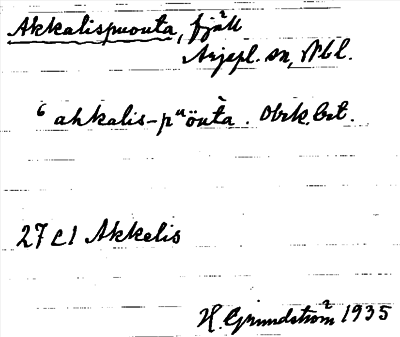 Akkalispuouta, fjäll
Arjepl. sn, Nbl.
‘ ahkalis-pᵘöu̯ta. Obrk. bet.
27 c1 Akkelis
H. Grundström 1935